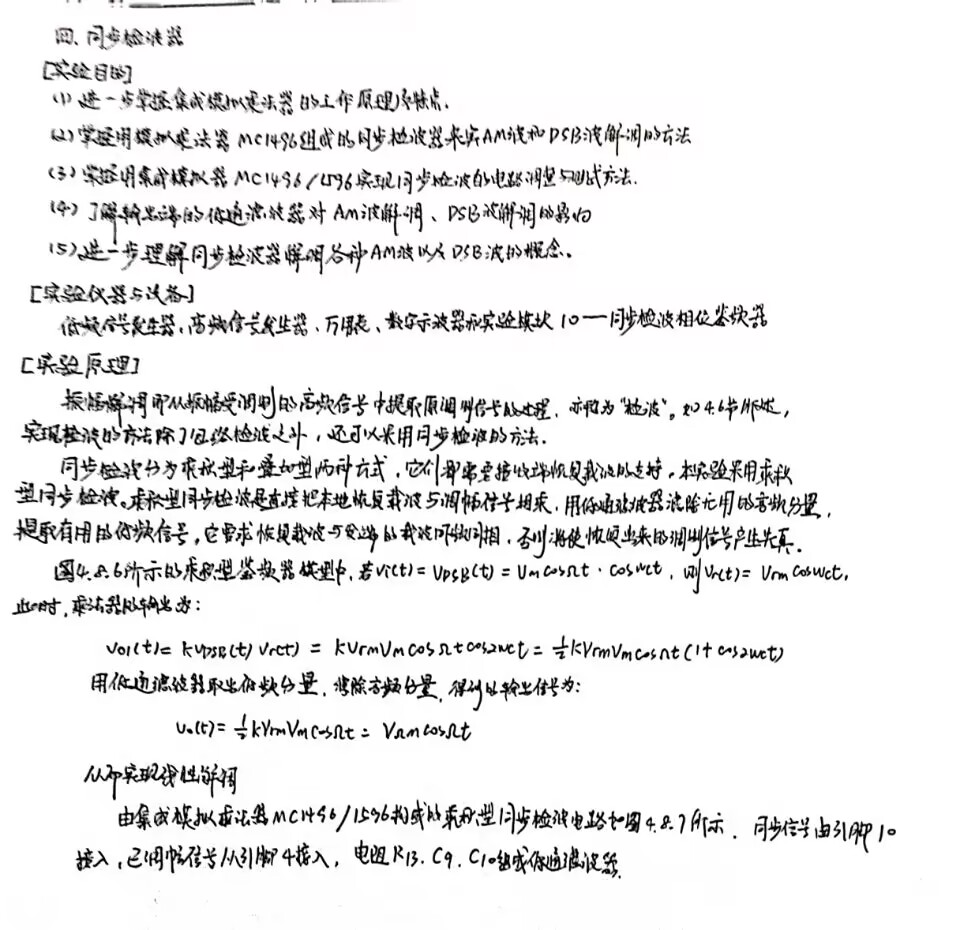 四、同步检波器
[实验目的]
(1)进一步掌握集成模拟乘法器的工作原理及特点.
(2)掌握用模拟乘法器MC1496组成的同步检波器来实AM波和DSB波解调的方法
(3)掌握用集成模拟器MC1496/1596实现同步检波的电路调整与测试方法.
(4)了解输出端的低通滤波器对AM波解调、DSB波解调的影响
(5)进一步理解同步检波器解调各种AM波以及DSB波的概念。
[实验仪器与设备]
低频信号发生器、高频信号发生器、万用表、数字示波器和实验模块10——同步检波相位鉴频器
[实验原理]
振幅解调即从振幅受调制的高频信号中提取原调制信号的过程,亦称为"检波"。如4.6节所述,
实现检波的方法除了包络检波之外,还可以采用同步检波的方法.
同步检波分为乘积型和叠加型两种方式,它们都需要接收端恢复载波的支持。本实验采用乘积
型同步检波。乘积型同步检波是直接把本地恢复载波与调幅信号相乘,用低通滤波器滤除无用的高频分量,
提取有用的低频信号。它要求恢复载波与发端的载波同频同相,否则将使恢复出来的调制信号产生失真.
图4.8.6所示的乘积型鉴频器模型中,若vi(t)=VDSB(t)=Vm cosΩt·cosωct,则vr(t)=Vrm cosωct,
此时,乘法器的输出为:
vo1(t)=kvDSB(t)vr(t)=kVrmVm cosΩt cos2ωct=½kVrmVm cosΩt(1+cos2ωct)
用低通滤波器取出低频分量,滤除高频分量,得到的输出信号为:
vo(t)=½kVrmVm cosΩt=VΩm cosΩt
从而实现线性解调
由集成模拟乘法器MC1496/1596构成的乘积型同步检波电路如图4.8.7所示.同步信号由引脚10
接入,已调幅信号从引脚4接入,电阻R13、C9、C10组成低通滤波器.